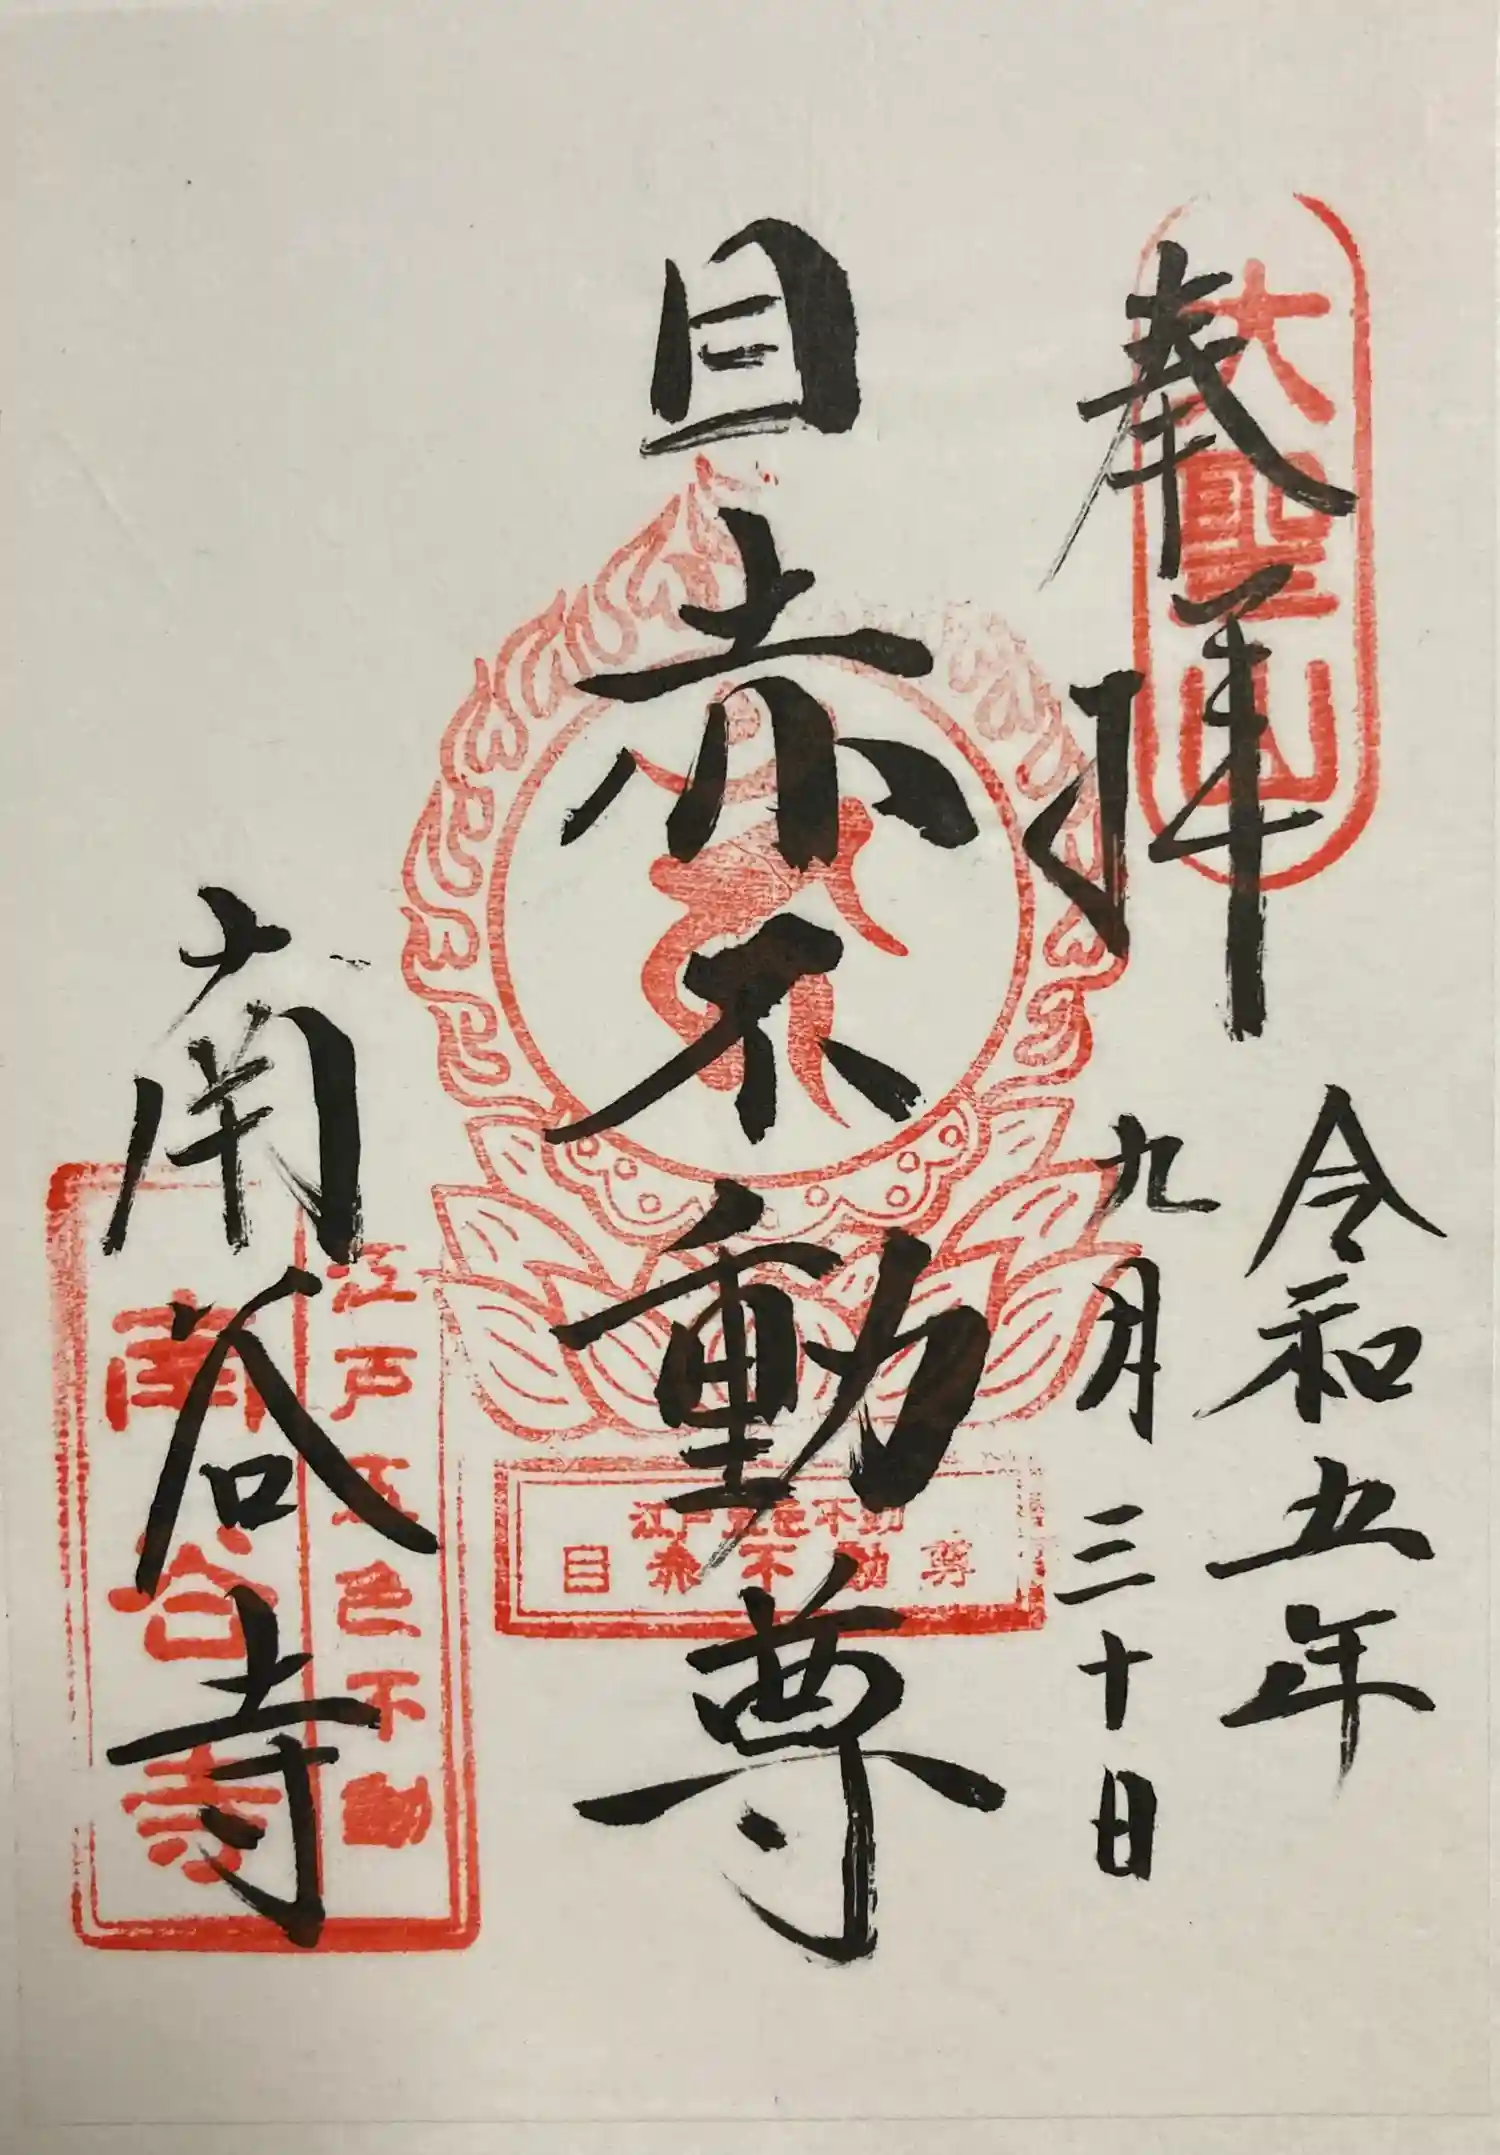 奉拝
大聖山
令和五年
九月三十日
目赤不動尊
江戸五色不動
目赤不動尊
南谷寺
江戸五色不動
南谷寺